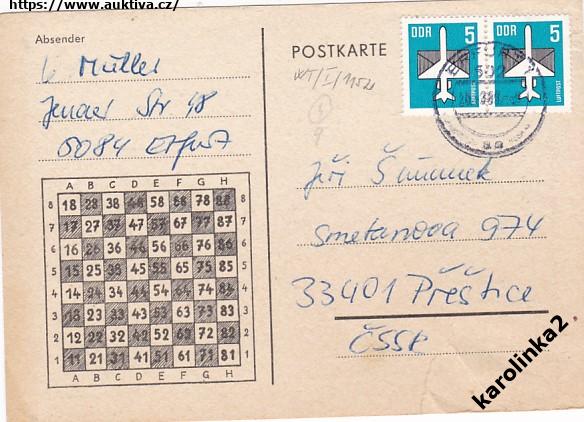 https://www.auktiva.cz/
Absender
Müller
Jenaer Str 48
5084 Erfurt
POSTKARTE
DDR 5
LUFTPOST
DDR 5
LUFTPOST
Jiří Šimunek
Smetanova 974
33401 Přeštice
ČSSR
A B C D E F G H
8 18 28 38 48 58 68 78 88 8
7 17 27 37 47 57 67 77 87 7
6 16 26 36 46 56 66 76 86 6
5 15 25 35 45 55 65 75 85 5
4 14 24 34 44 54 64 74 84 4
3 13 23 33 43 53 63 73 83 3
2 12 22 32 42 52 62 72 82 2
1 11 21 31 41 51 61 71 81 1
A B C D E F G H
karolinka2